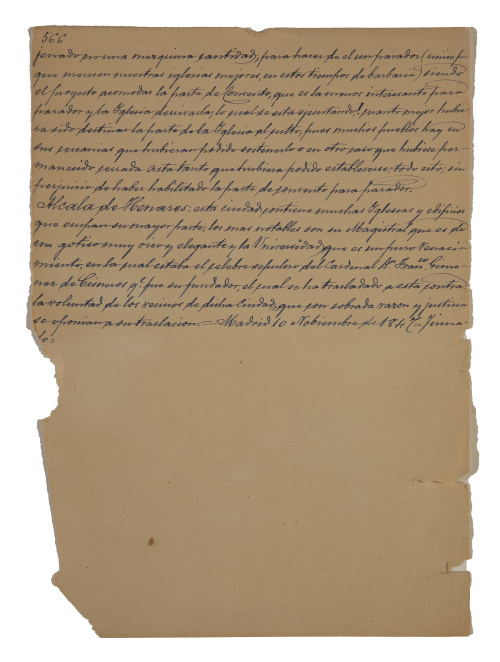 566
jenado en una mezquina cantidad, para hacer de el un parador (unico fin
que merecen nuestras iglesias mejores, en estos tiempos de barbarie) siendo
el proyecto acomodar la parte de Convento, que es la menos interesante para
parador y la Iglesia derrivarla, lo cual se está ejecutando! cuanto mejor hubie-
ra sido destinar la parte de la Iglesia al culto, pues muchos pueblos hay en
sus cercanias que hubieran podido sostenerlo o en otro caso que hubiese per-
manecido cerrada asta tanto que hubiera podido establecerse, todo esto, sin
perjuicio de haber habilitado la parte de convento para parador.
Alcala de Henares: esta ciudad contiene muchas Iglesias y edificios
que ocupan su mayor parte, los mas notables son su Magistral que es de
un gótico muy rico y elegante y la Universidad, que es un puro renaci-
miento, en la cual estaba el celebre sepulcro del Cardenal Dn. Fran.co Gime-
nez de Cisneros q.e fue su fundador, el cual se ha trasladado a esta contra
la voluntad de los vecinos de dicha Ciudad, que con sobrada razon y justicia
se oponian a su traslacion = Madrid 10 Nobiembre de 184
lo=